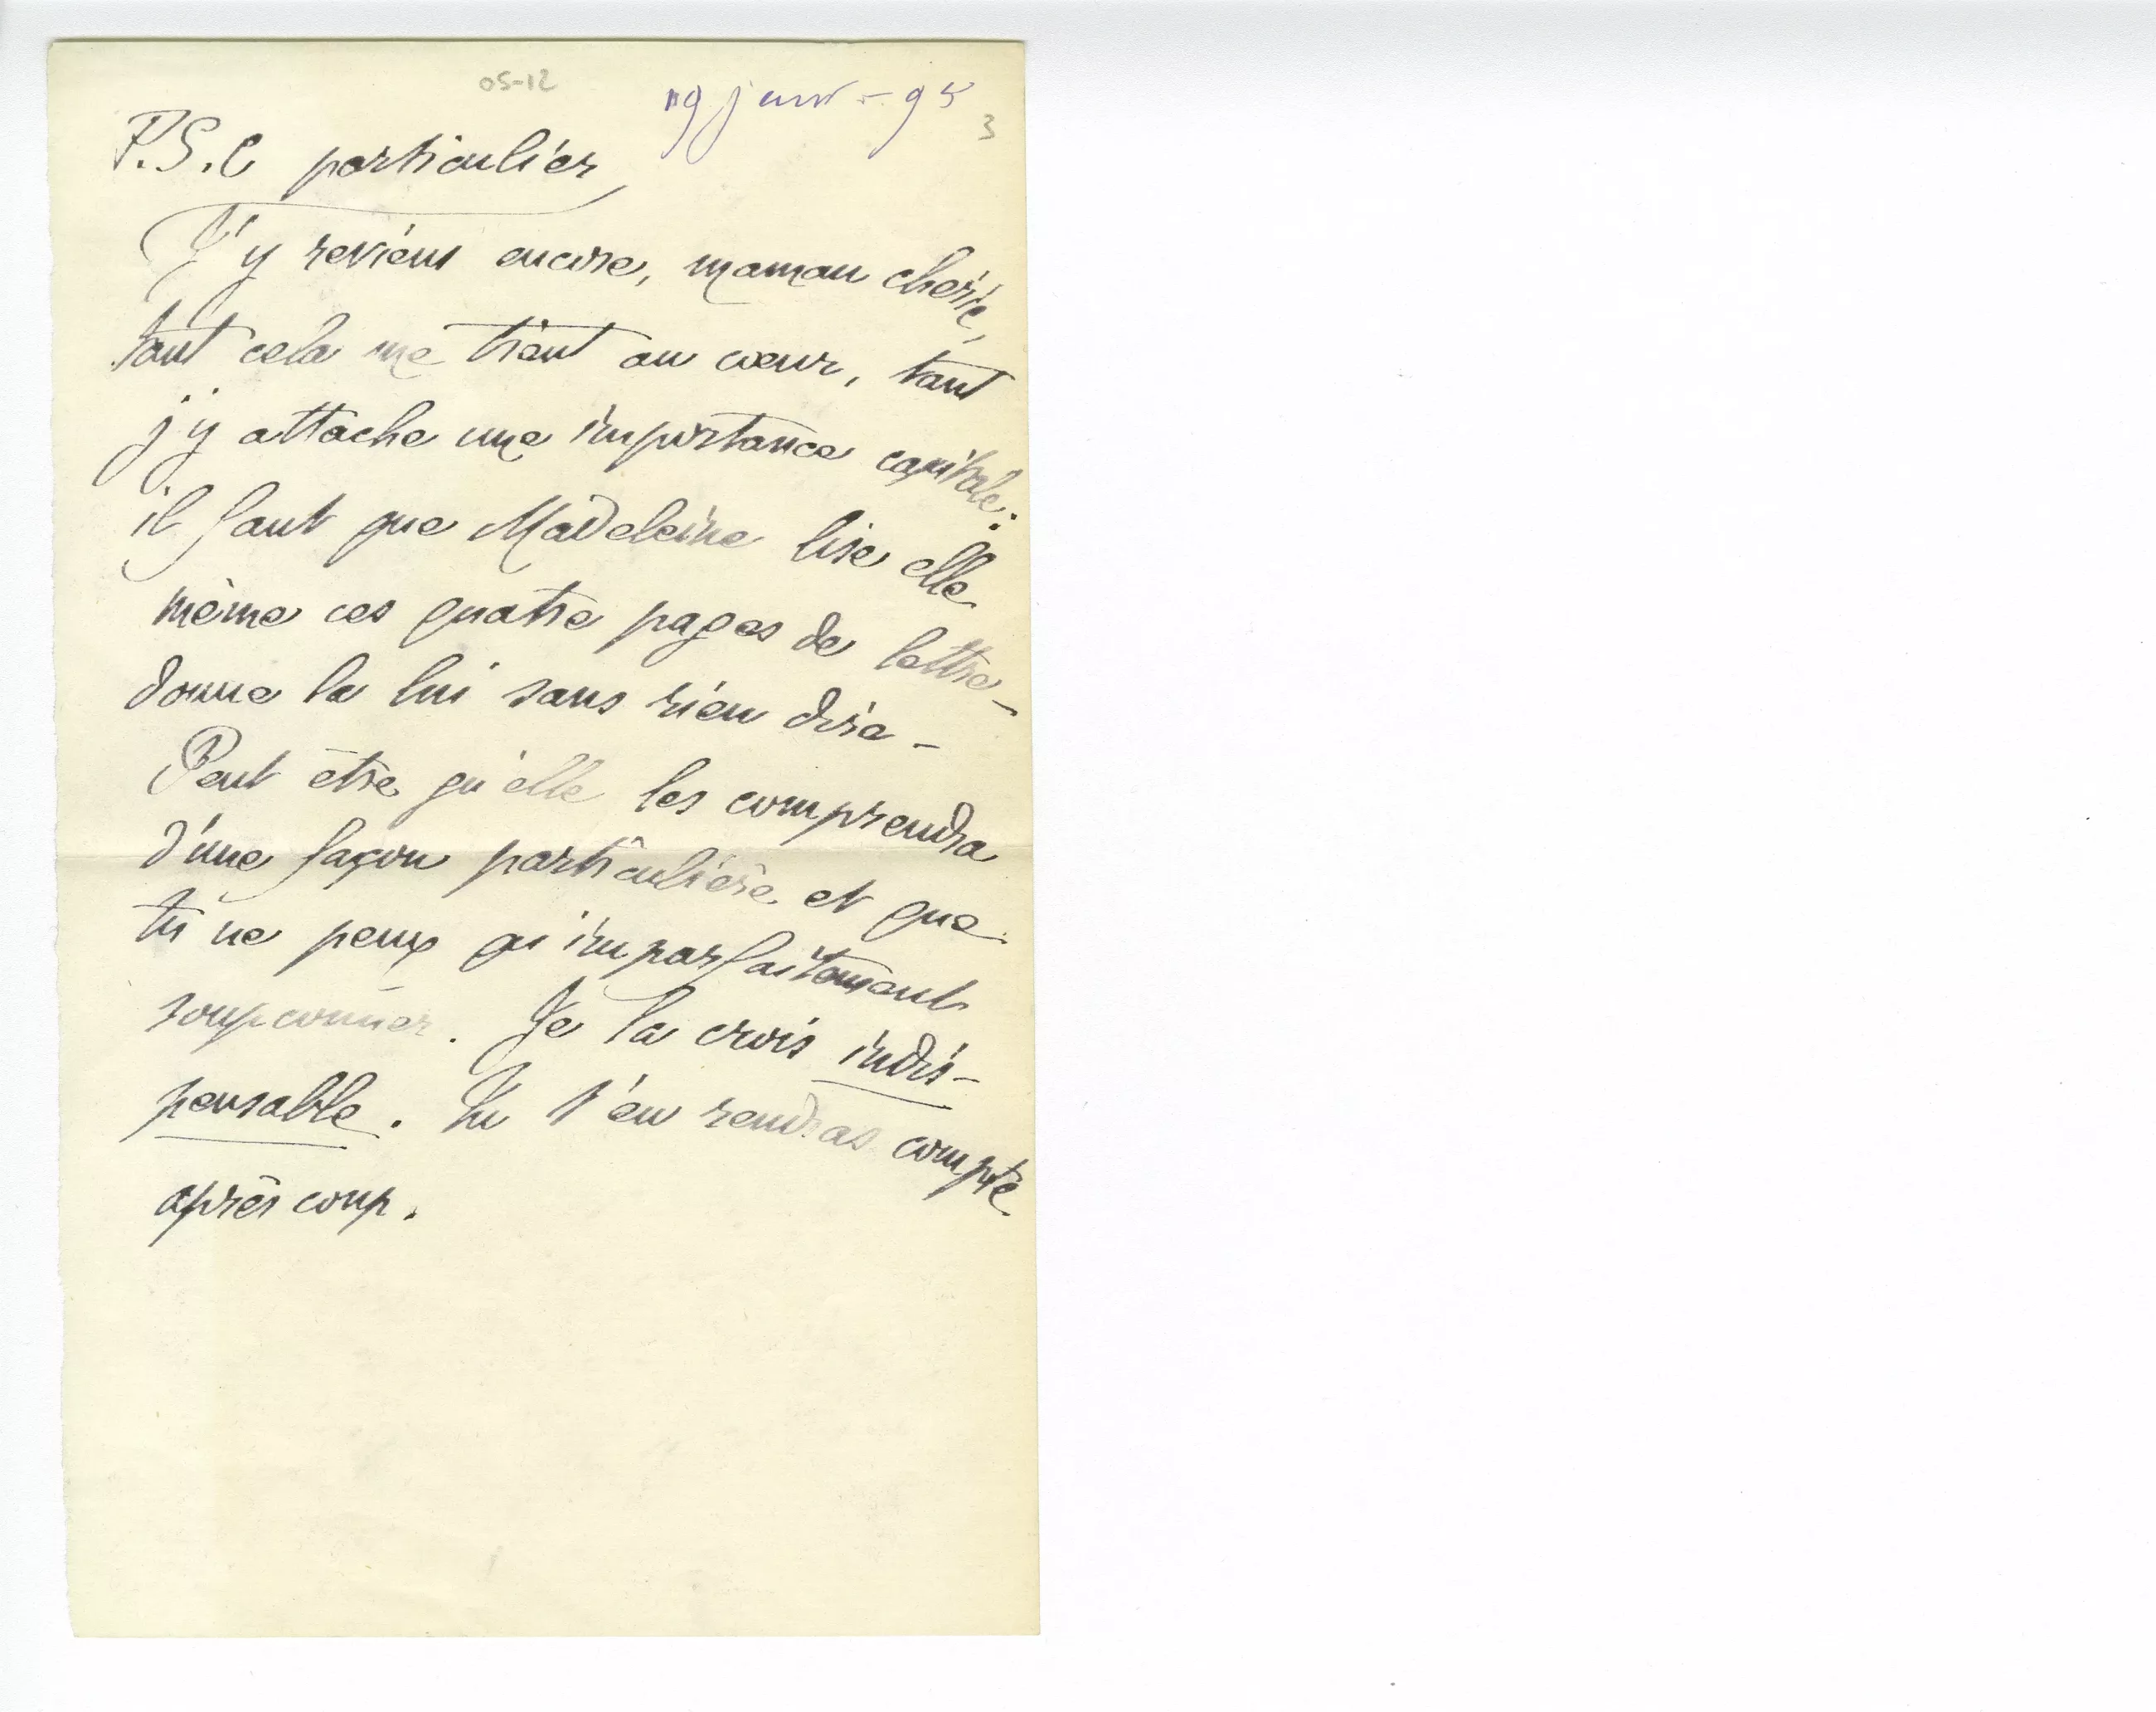 05-12
19 janv - 95
3
P.S.C particulier
J'y reviens encore, maman chérie,
tant cela me tient au cœur, tant
j'y attache une importance capitale :
il faut que Madeleine lise elle
même ces quatre pages de lettre -
donne la lui sans rien dire -
Peut être qu'elle les comprendra
d'une façon particulière et que
tu ne peux qu'imparfaitement
soupconner. Je la crois indis-
pensable. Tu t'en rendras compte
après coup.